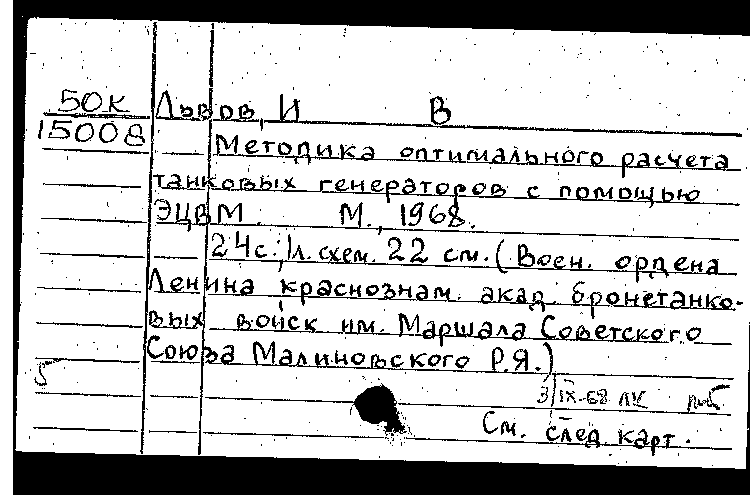 50К Львов, И В
15008 Методика оптимального расчета
танковых генераторов с помощью
ЭЦВМ. М., 1968.
24с.; 1л. схем. 22 см. (Воен. ордена
Ленина краснознам. акад. бронетанко-
вых войск им. Маршала Советского
Союза Малиновского Р.Я.)
5
3/IX-68
См. след. карт.